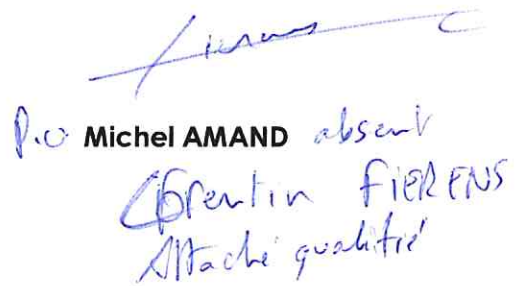 P.O Michel AMAND absent
Corentin FIERENS
Attaché qualifié